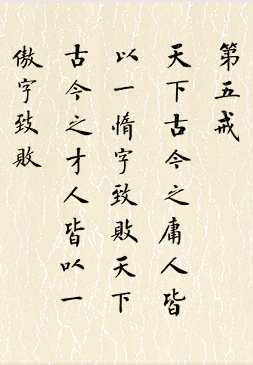 第五戒
天下古今之庸人皆
以一惰字致敗天下
古今之才人皆以一
傲字致敗